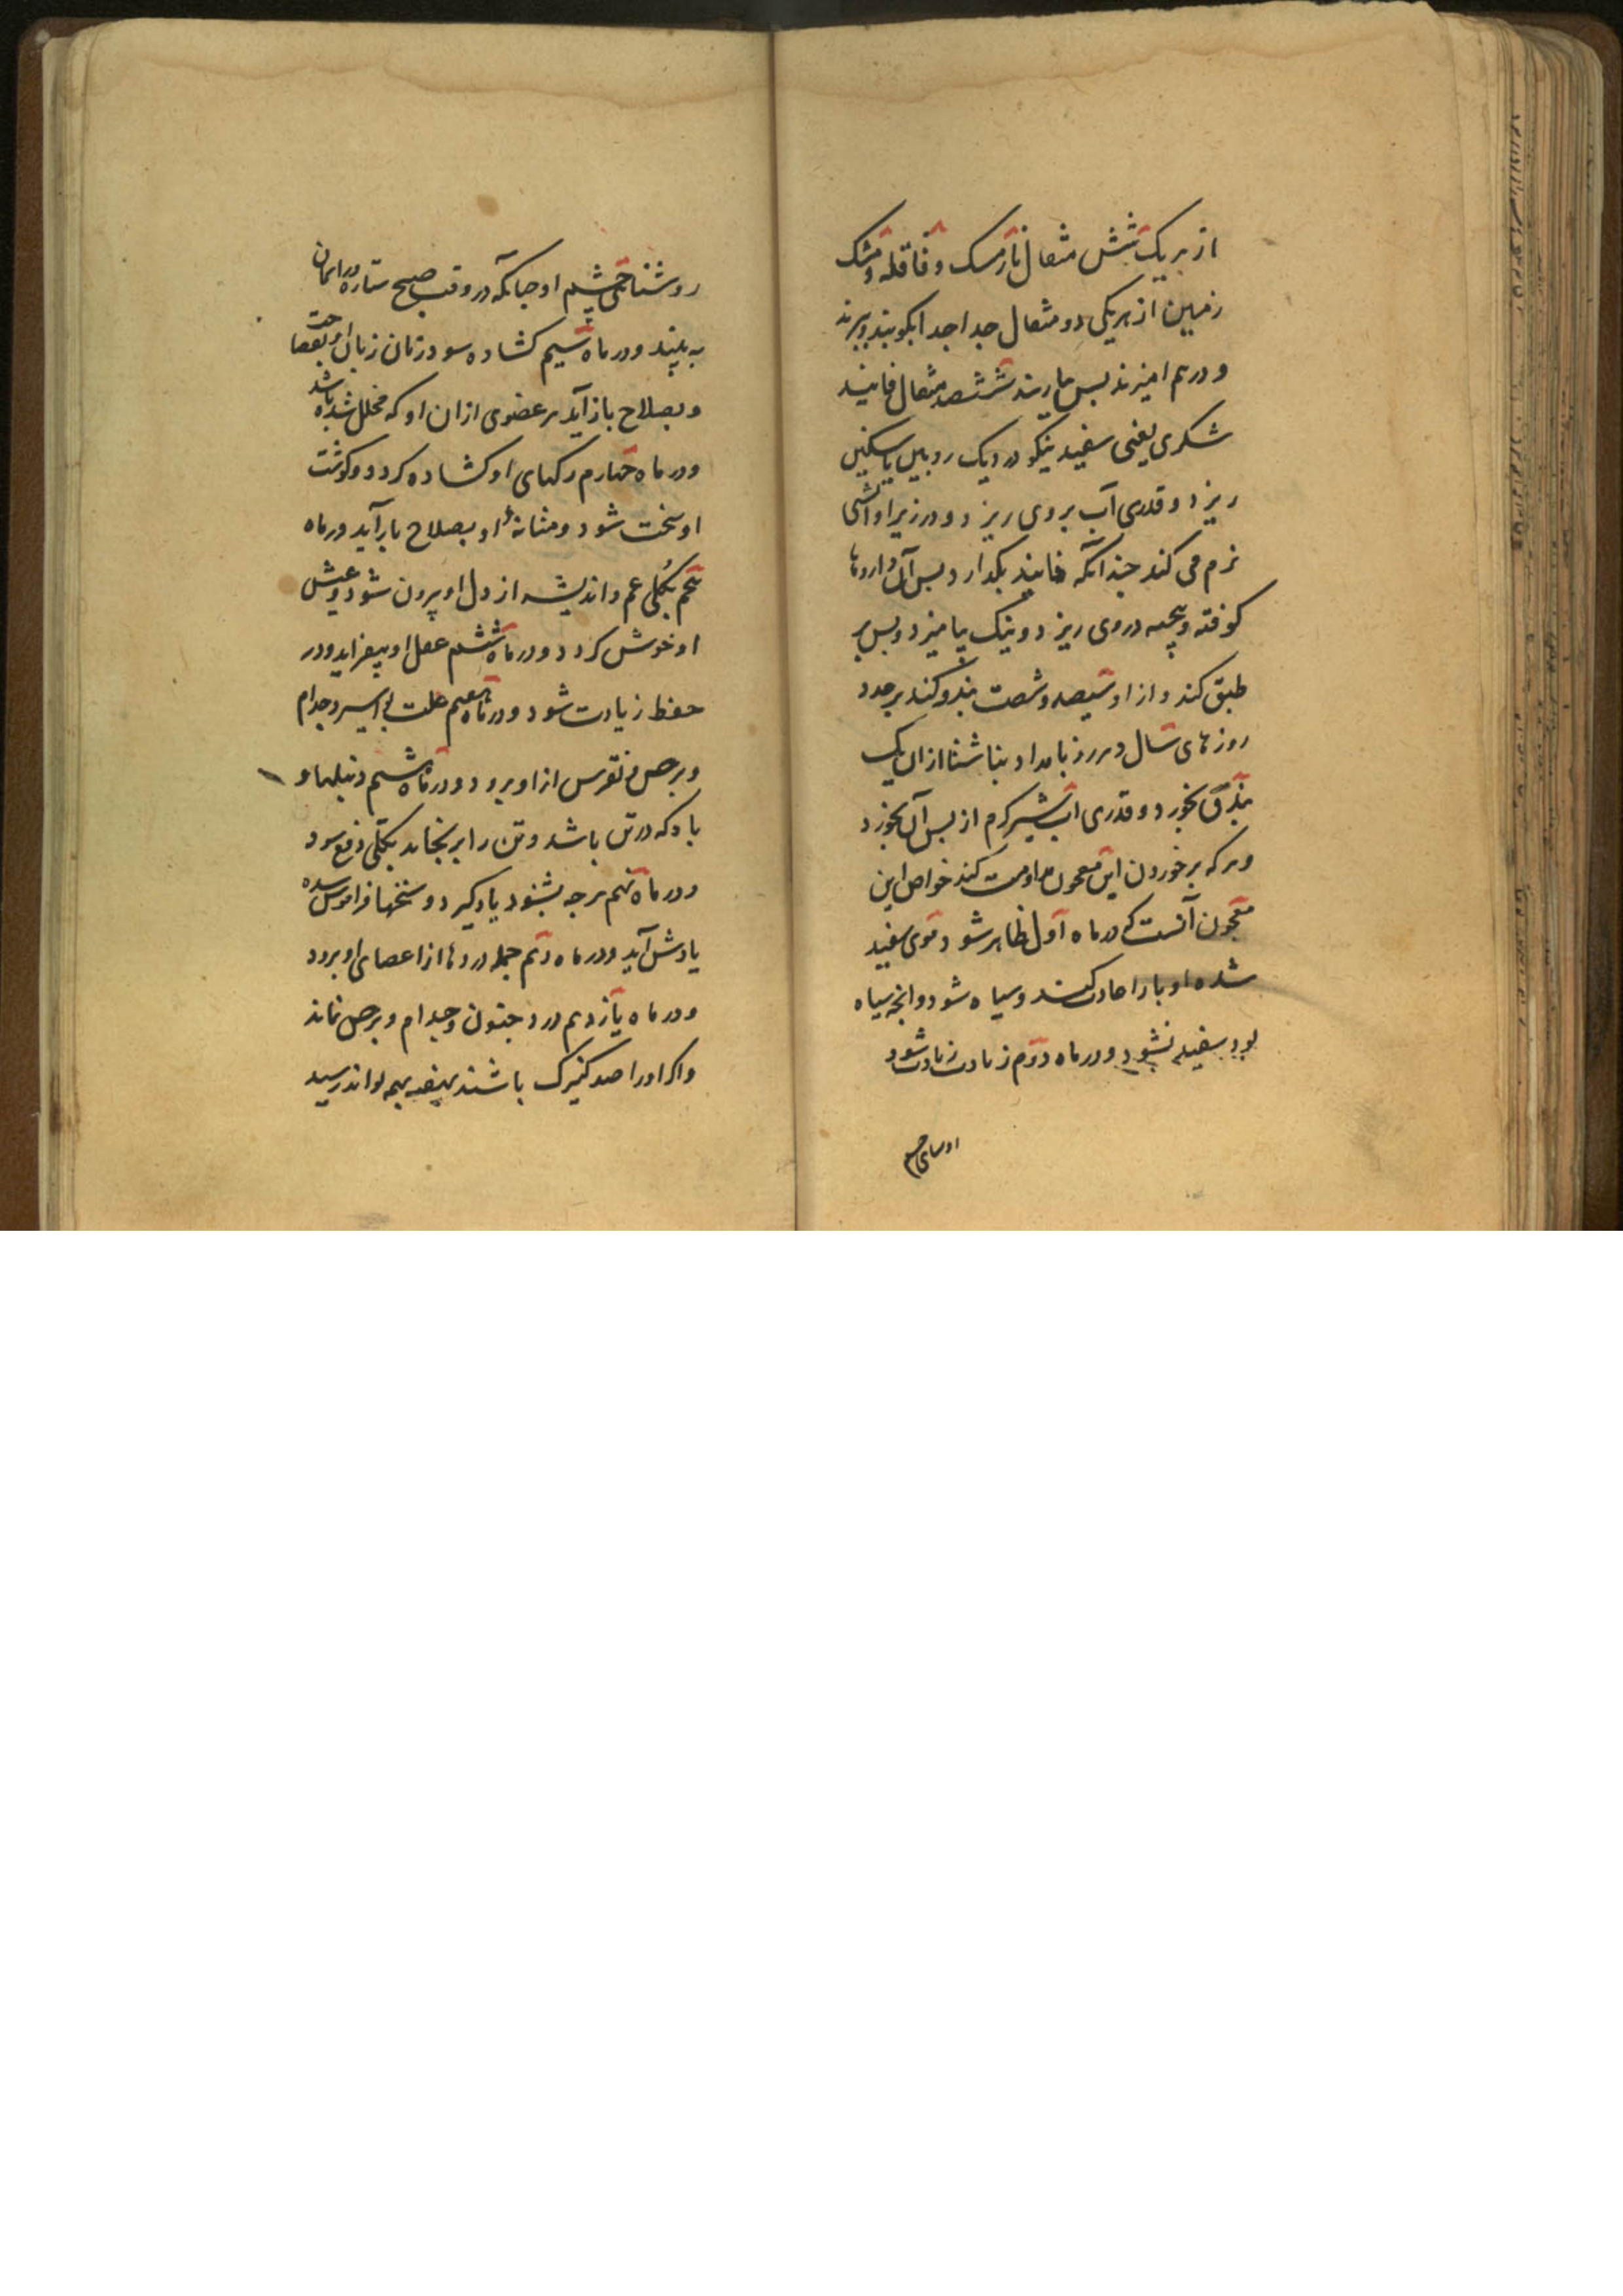 از هر یک شش مثقال نارمشک و قاقله و مشک
زمین از هر یکی دو مثقال جدا جدا بکوبند و ببزند
و درهم امیزند پس بیارند ششصد مثقال فانید
شکری یعنی سفید نیکو در دیک رویین یا سنکین
ریزد و قدری آب بر وی ریزد و در زیر او اتشی
نرم می کند چندانکه فانید بکدازد پس آن داروها
کوفته و بیخته در وی ریزد و نیک بیامیزد و پس بر
طبق کند و از او سیصد و شصت بندق کند بر عدد
روزهای سال و هر روز بامداد بناشتا از ان یک
بندق بخورد و قدری اب شیر کرم از پس آن بخورد
و هر که بر خوردن این معجون مداومت کند خواص این
معجون آنست که در ماه اول ظاهر شود موی سفید
شده او باز اعادت کند و سیاه شود و انچه سیاه
بود سفید نشود و در ماه دوم زیادت زیادت شود
روشنائی چشم او چنانکه در وقت صبح ستاره در اسمان
به بیند و در ماه سیم کشاده شود زمان زبان او
و بصلاح باز آید هر عضوی از ان او که مختل شده باشد
و در ماه چهارم رکهای او کشاده کردد و کوشت
او سخت شود و مثانهٔ او بصلاح باز آید در ماه
پنجم بکلی غم و اندیشه از دل او بیرون شود و عیش
او خوش کردد و در ماه ششم عقل او بیفزاید و در
حفظ زیادت شود و در ماه هفتم علت بواسیر و جذام
و برص و نقرس از او برود و در ماه هشتم دنبلها و
باد که در تن باشد و تن را برنجاند بکلی دفع شود
و در ماه نهم هر چه بشنود یاد کیرد و سخنها فراموش شده
یادش آید و در ماه دهم جمله دردها از اعضای او برود
و در ماه یازدهم درد جنون و جذام و برص نماند
و اکر او را صد کنیزک باشند بهمه تواند رسید